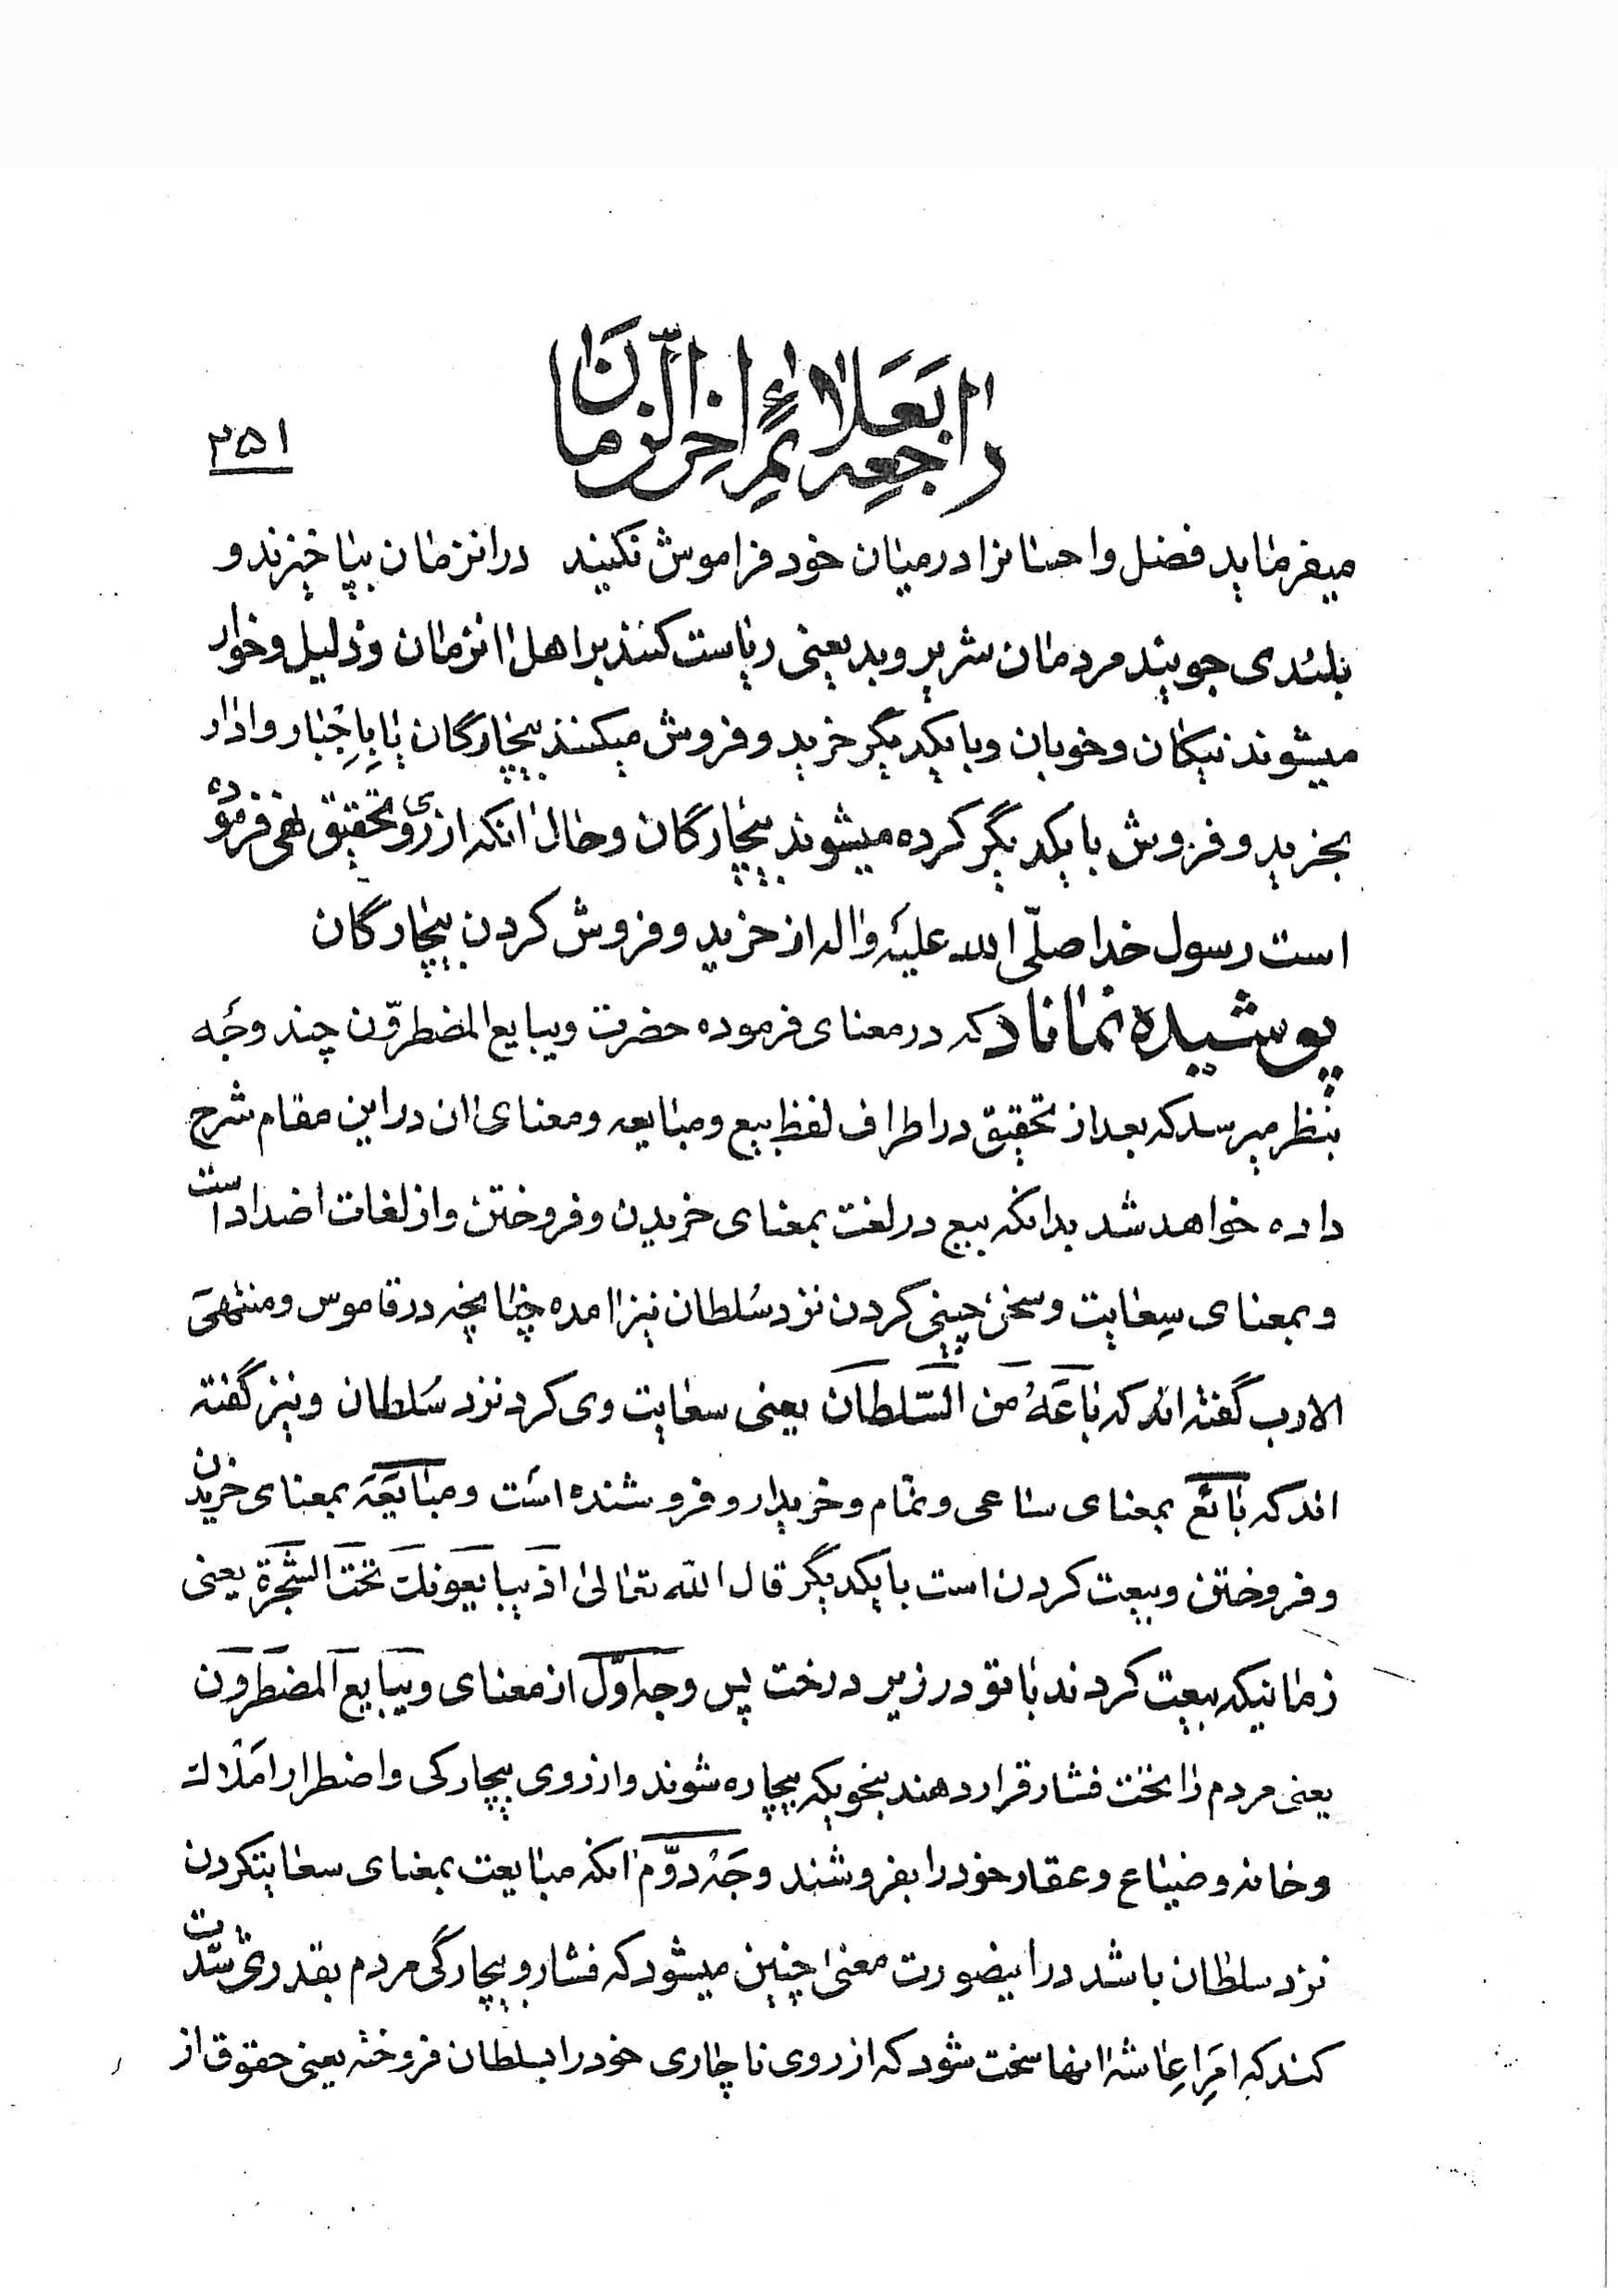 راجعه بعلائم اخر الزمان
۲۵۱
میفرماید فضل واحسانرا درمیان خود فراموش نکنید درانزمان بپا خیزند و
بلندی جویند مردمان شریر وبد یعنی ریاست کنند براهل انزمان وذلیل وخوار
میشوند نیکان وخوبان وبا یکدیگر خرید وفروش میکنند بیچارگان یا باجبار وادار
بخرید وفروش با یکدیگر کرده میشوند بیچارگان وحال انکه ازروی تحقیق نهی فرموده
است رسول خدا صلّی الله علیه واله از خرید وفروش کردن بیچارگان
پوشیده نماناد که درمعنای فرموده حضرت ویبایع المضطرّون چند وجه
بنظر میرسد که بعد از تحقیق دراطراف لفظ بیع ومبایعه ومعنای ان دراین مقام شرح
داده خواهد شد بدانکه بیع درلغت بمعنای خریدن وفروختن وازلغات اضداد است
وبمعنای سِعایت وسخن چینی کردن نزد سُلطان نیز امده چنانچه درقاموس ومنتهی
الادب گفته اند که باعَهُ مَن السّلطان یعنی سعایت وی کرد نزد سُلطان ونیز گفته
اند که بائع بمعنای ساعی ونمّام وخریدار وفروشنده است ومبایَعَه بمعنای خریدن
وفروختن وبیعت کردن است با یکدیگر قال الله تعالی اذ یبایعونک تحت الشجرة یعنی
زمانیکه بیعت کردند باتو درزیر درخت پس وجه اوّل ازمعنای ویبایع المضطرون
یعنی مردم را تحت فشار قرار دهند بنحویکه بیچاره شوند وازروی بیچارکی واضطرار املاک
وخانه وضیاع وعقار خود را بفروشند وجه دوّم انکه مبایعت بمعنای سعایتکردن
نزد سلطان باشد دراینصورت معنی چنین میشود که فشار وبیچارگی مردم بقدری شدّت
کند که امر اعاشه انها سخت شود که ازروی ناچاری خود را بسلطان فروخته یعنی حقوق از